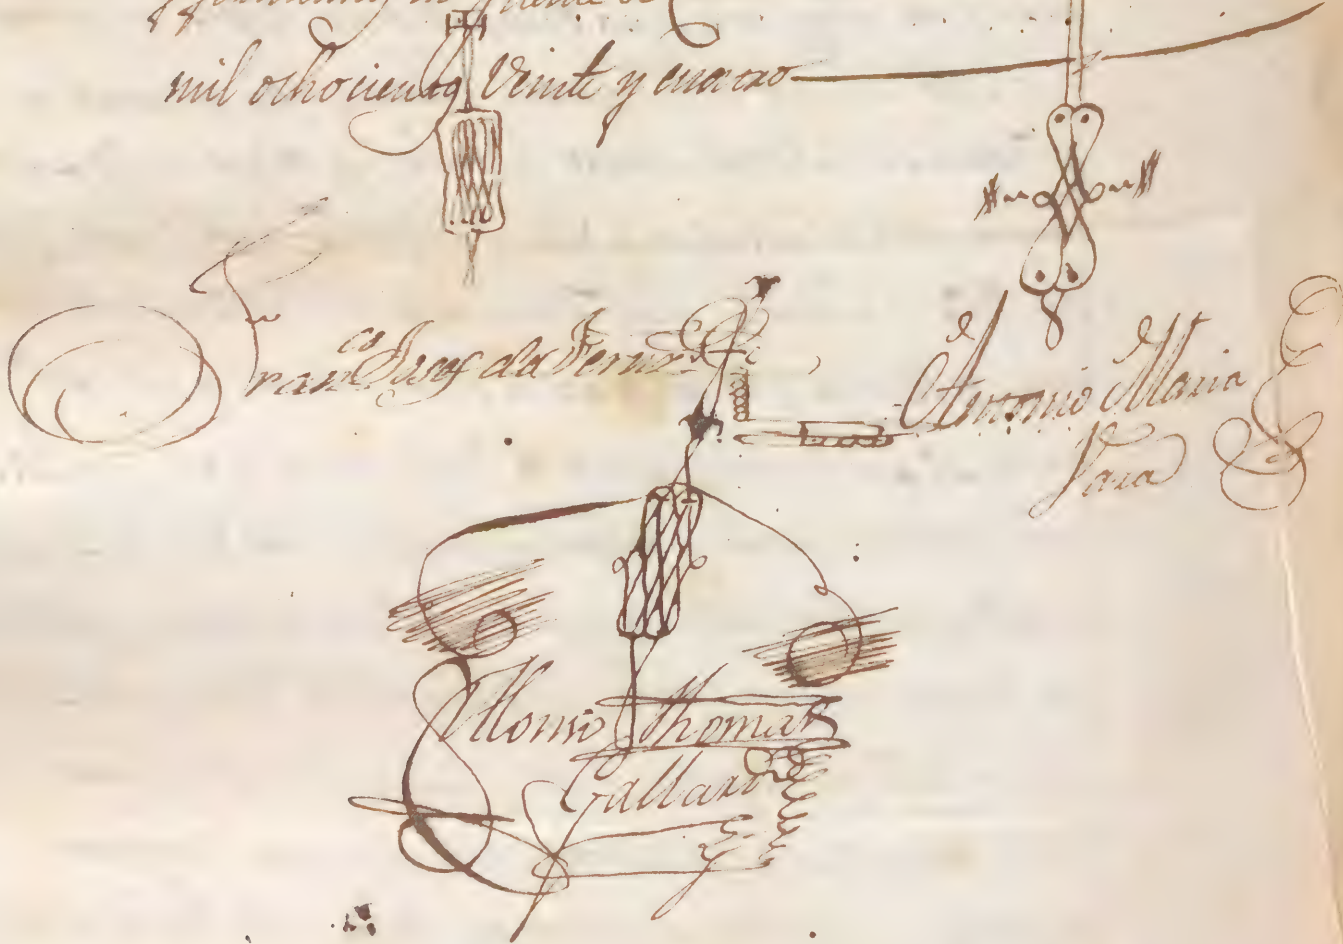 mil ochocientos Veinte y cuatro
Fran.co Josef de
Antonio Maria
Vara
Alonso Thomas
Gallardo